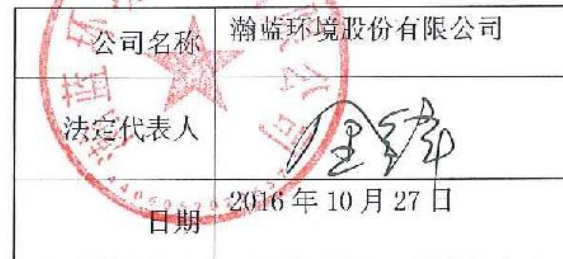 公司名称 瀚蓝环境股份有限公司
法定代表人 金铎
日期 2016年10月27日